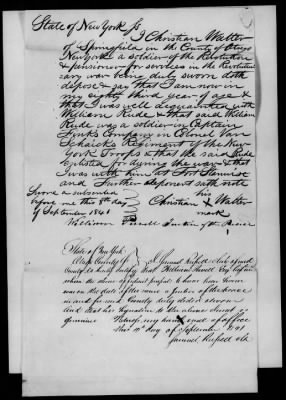 State of New York ss
I Christian Walter
of Springfield in the County of Otsego
New York a soldier of the Revolution
& pensioner for services in the Revolution
ary war being duly sworn doth
depose & say that I am now in
my eighty third year of age &
that I was well acquainted with
William Rude & that said William
Rude was a soldier in Captain
Company in Colonel Van
Schaicks Regiment of the New
York Troops that the said Rude
Enlisted for during the war & that
I was with him at Fort Stanwise
and further deponent saith not
Sworn & subscribed his
before me this 8th day Christian X Walter
of September 1841 mark
William Justice of the Peace
State of New York
Otsego County ss I Samuel Russell Clerk of said
County do hereby certify that William Esq before
whom the above affidavit purports to have been sworn
was on the date of the same a Justice of the Peace
in and for said County duly and sworn
And that his signature to the above Jurat is
genuine Witness my hand & seal of office
this 11th day of September 1841
Samuel Russell Clk